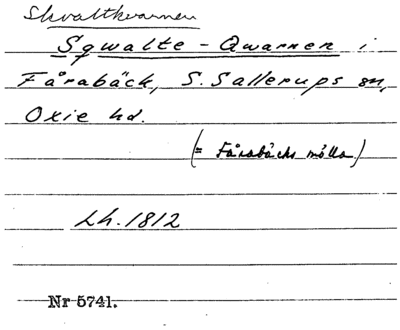 Skvaltkvarnen
Sqwalte-Qwarnen i
Fårabäck, S. Sallerups sn,
Oxie hd.
(= Fårabäcks mölla)
Lh. 1812
Nr 5741.